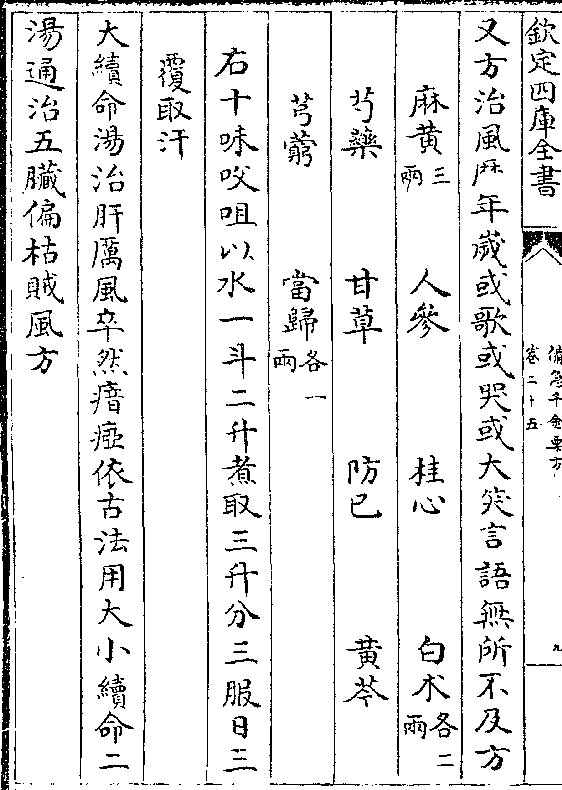 欽定四庫全書
備急千金要方
卷二十五
九
又方治風歴年歲或歌或哭或大笑言語無所不及方
麻黄三兩 人參 桂心 白术各二兩
芍藥 甘草 防已 黄芩
芎藭 當歸各一兩
右十味㕮咀以水一斗二升煮取三升分三服日三
覆取汗
大續命湯治肝厲風卒然瘖瘂依古法用大小續命二
湯通治五臟偏枯賊風方